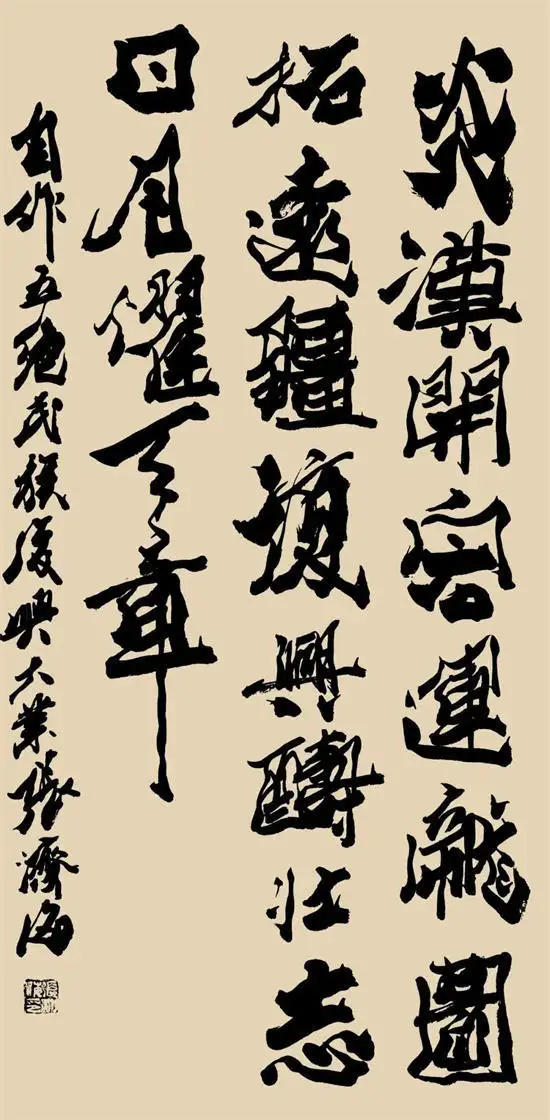 炎漢開宏運龍圖
拓遠疆復興醻壯志
日月耀天章
自作五绝民族復興大業張濟海